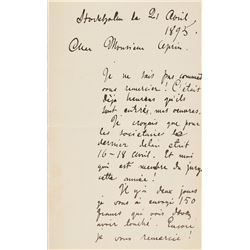 Stockholm le 21 Avril
1895
Cher Monsieur
Je ne sais pas comment
vous remercier! C'était
déjà heureux qu'ils
sont entrés, mes oeuvres.
Je croyais que pour
les sociétaires le
dernier délai était
16-18 avril. Et moi
qui est membre du jury
cette année!
Il y a deux jours
je vous a envoyé 150
francs qui vous
avoir touché. Encore
je vous remercie!